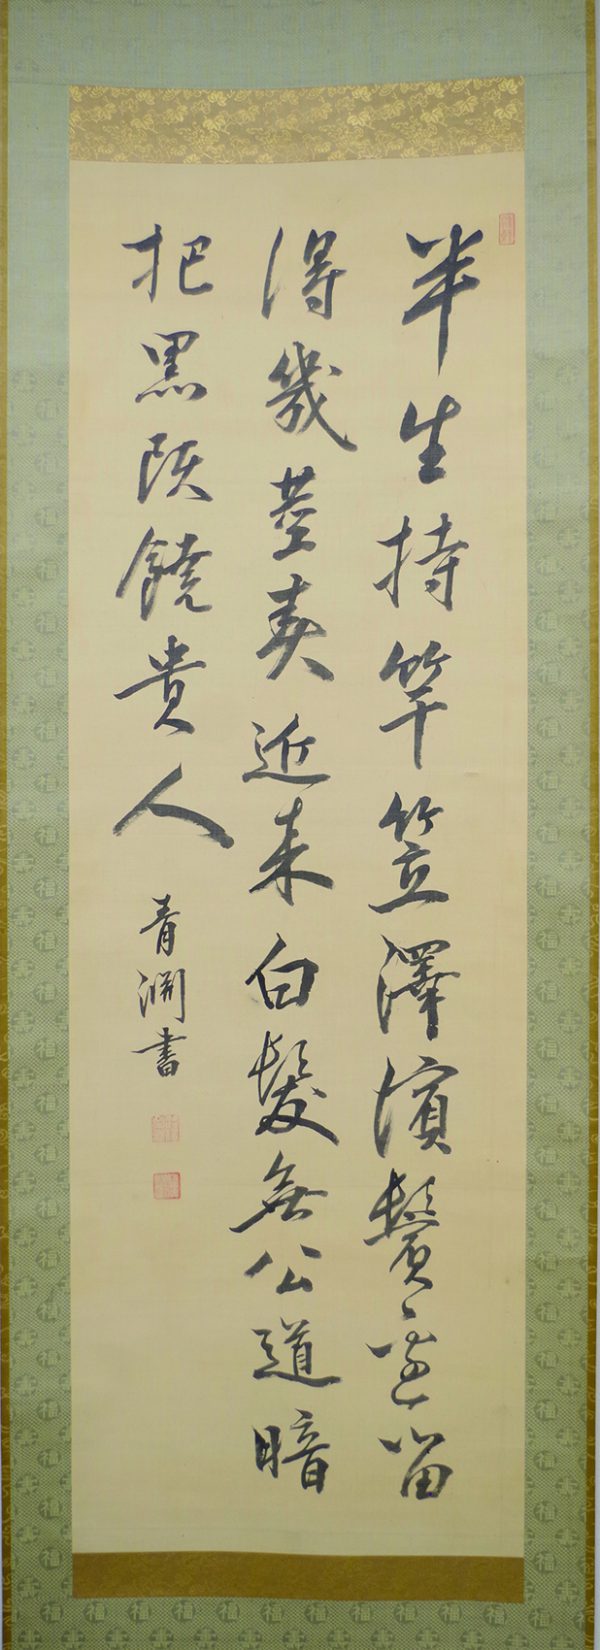 半生持竿笠澤濱鬢邊留
得幾莖真近来白髮無公道暗
把黒頭饒貴人
青淵書